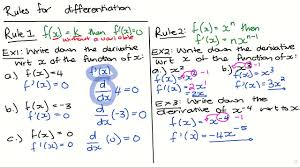 Rules for differentiation
Rule 1 f(x)=k then f'(x)=0
without a variable
Ex1: Write down the derivative
wrt x of the function of x:
a.) f(x)=4 f'(x)
f'(x)=0 d/dx 4=0
b.) f(x)=-3 d/dx (-3)=0
f'(x)=0
c.) f(x)=0 d/dx (0)=0
f'(x)=0
Rule2: f(x)=xⁿ then
f'(x)=nxⁿ⁻¹
Ex2: Write down the derivative
wrt x of the function of x:
a.) x² b.) x³
f(x)=x² f(x)=x³
f'(x)=2x f'(x)=3x²
Ex 3: Write down the
derivative of x⁻⁴ wrt to x
f(x)=x⁻⁴ -1
f'(x)=-4x⁻⁵